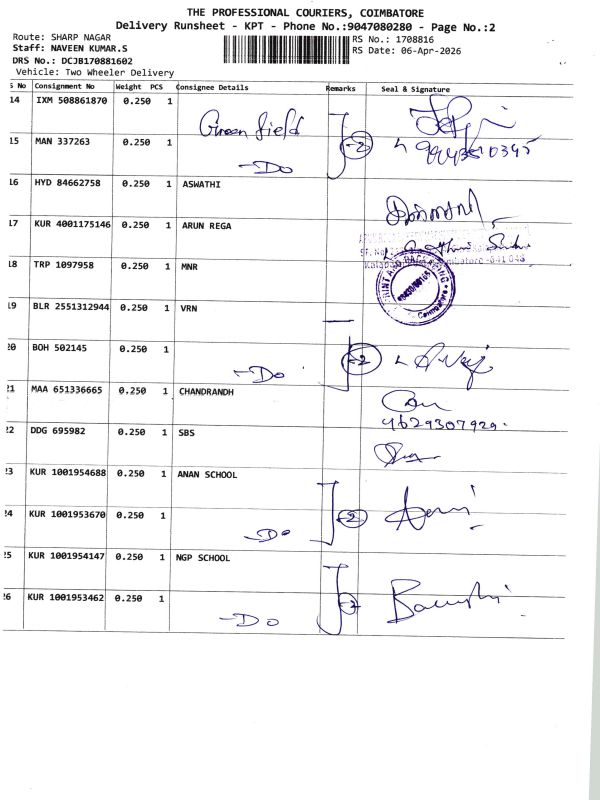 THE PROFESSIONAL COURIERS, COIMBATORE
Delivery Runsheet - KPT - Phone No.:9047080280 - Page No.:2
Route: SHARP NAGAR RS No.: 1708816
Staff: NAVEEN KUMAR.S RS Date: 06-Apr-2026
DRS No.: DCJB170881602
Vehicle: Two Wheeler Delivery
S No Consignment No Weight PCS Consignee Details Remarks Seal & Signature
14 IXM 508861870 0.250 1 Green field
15 MAN 337263 0.250 1 -Do 2
16 HYD 84662758 0.250 1 ASWATHI
17 KUR 4001175146 0.250 1 ARUN REGA
18 TRP 1097958 0.250 1 MNR
19 BLR 2551312944 0.250 1 VRN
20 BOH 502145 0.250 1 -Do 2
21 MAA 651336665 0.250 1 CHANDRANDH
9629307929.
22 DDG 695982 0.250 1 SBS
23 KUR 1001954688 0.250 1 ANAN SCHOOL
24 KUR 1001953670 0.250 1 -Do 2
25 KUR 1001954147 0.250 1 NGP SCHOOL
26 KUR 1001953462 0.250 1 -Do 2